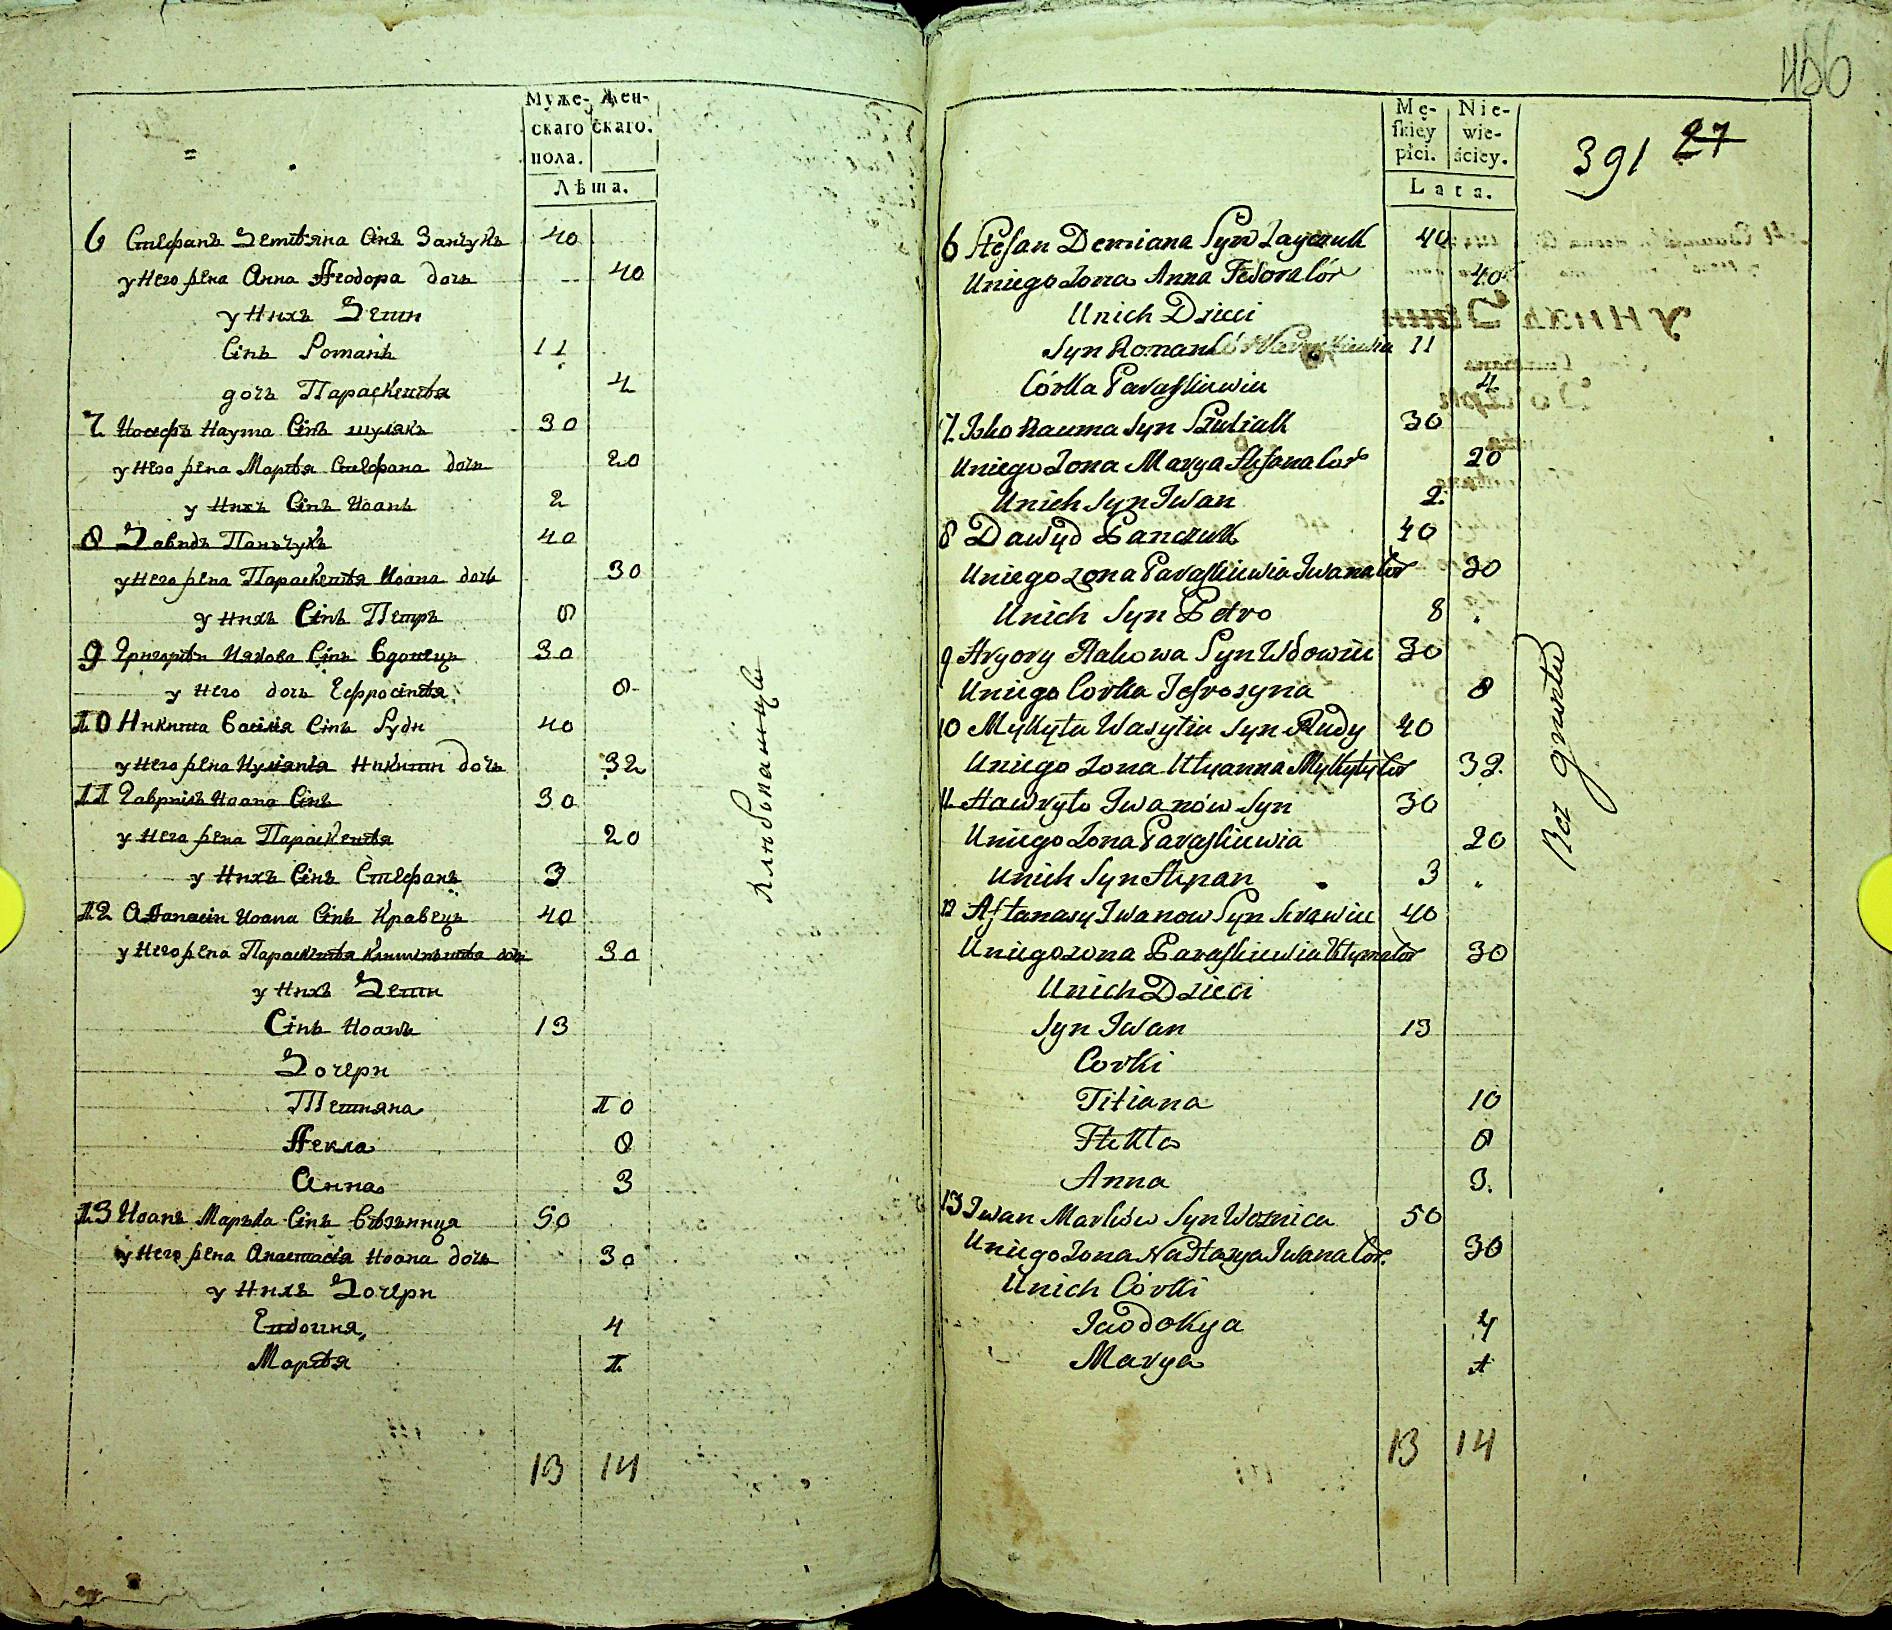 Муже- Жен-
скаго скаго.
пола.
Лѣта.
6 Стефанъ Демѣяна Сінъ Заичукъ 40
у него жена Анна Ѳеодора дочь 40
у Нихъ Дети
Сінъ Романъ 11
дочь Параскевѣя 4
7 Иосефъ Наума Сінъ шулякъ 30
у него жена Марѣя Стефана дочь 20
у Нихъ Сінъ Иоанъ 2
8 Давидъ Панъчукъ 40
у него жена Параскевѣя Иоана дочь 30
у нихъ Сінъ Петръ 8
9 Григорій Иякова Сінъ Вдовецъ 30
у Него дочь Ефросінѣя 8
10 Никита Василія Сінъ Руди 40
у него жена Иуліянія Никити дочь 32
11 Гавриілъ Иоана Сінъ 30
у Него жена Параскевѣя 20
у Нихъ Сінъ Стефанъ 3
12 Аѳанасіи Иоана Сінъ Кравецъ 40
у Него жена Параскевѣя дочь 30
у Нихъ Дети
Сінъ Иоанъ 13
Дочери
Тетияна 10
Ѳекла 8
Анна 3
13 Иоанъ Маръка Сінъ Вѣзъница 50
у Него жена Анастасія Иоана дочь 30
у Нихъ Дочери
Евдокия 4
Марѣя 1
13 14
456
391 27
Mę- Nie-
skiey wie-
płci. ściey.
Lata.
6 Stefan Demiana Syn Zayczuk 40
Uniego Zona Anna Fedora Cór 40
Unich Dzieci
Syn Roman 11
Córka Paraskiewia 4
7. Isko Nauma Syn Szuliak 30
Uniego Zona Marya Stefana Cor 20
Unich Syn Iwan 2.
8 Dawyd Panczuk 40
Uniego zona Paraskiewia Iwana Cor 30
Unich Syn Petro 8
9 Hryory Iakowa Syn Wdowiec 30
Uniego Corka Jefrosyna 8
10 Mykyta Wasyliu Syn Rudy 40
Uniego Zona Ulyanna Mykyty Cor 32.
11 Hawryło Iwanów Syn 30
Uniego Zona Paraskiewia 20
Unich Syn Stepan 3
12 Aftanasy Iwanow Syn Krawiec 40
Uniego zona Paraskiewia Cor 30
Unich Dzieci
Syn Iwan 13
Corki
Titiana 10
Tekla 8
Anna 3.
13 Iwan Marków Syn Woznica 50
Uniego Zona Nastasya Iwana Cor. 30
Unich Córki
Jawdokya 4
Marya 1
13 14
Bez gruntu